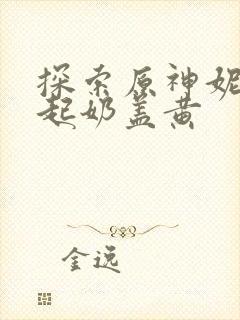 探索原神妮
起奶盖黄
金逸